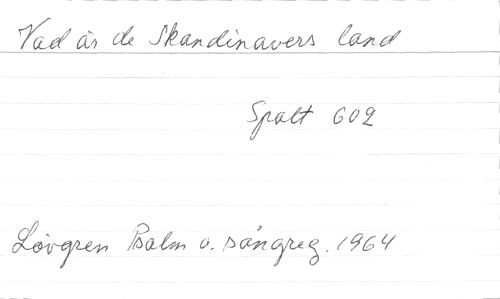 Vad är de Skandinavers land
Spalt 602
Lövgren Psalm o. sångreg. 1964